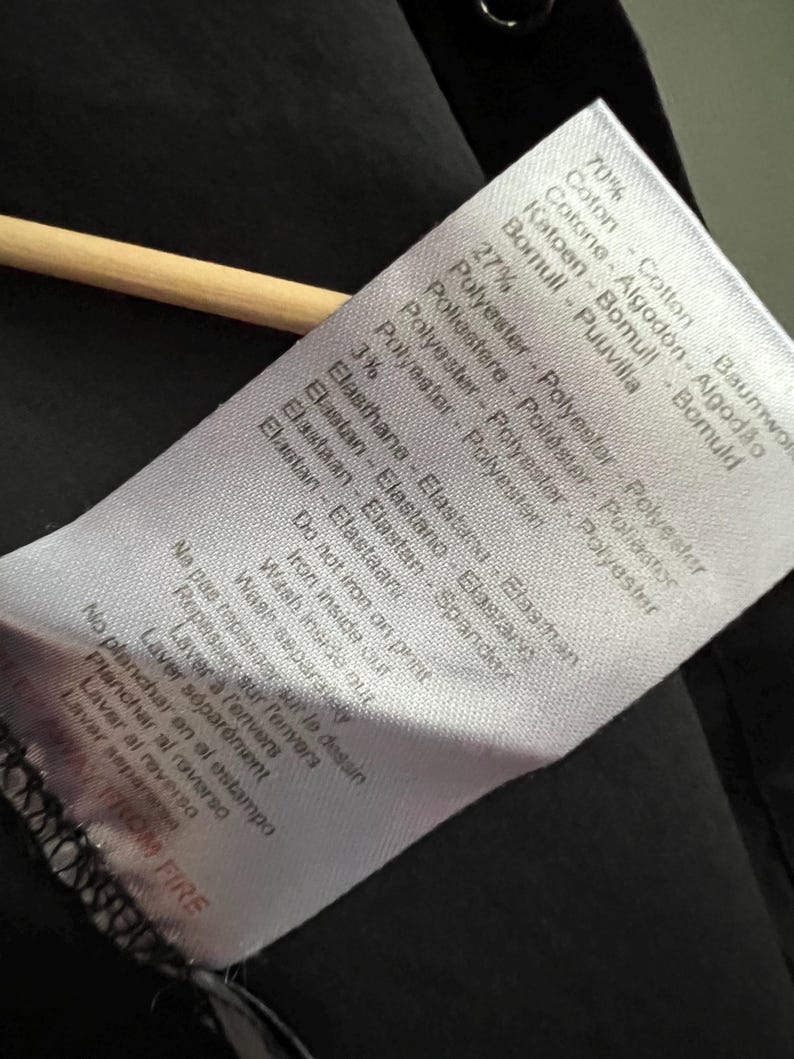 70%
Coton - Cotton - Baumwol
Cotone - Algodón - Algodão
Katoen - Bomull - Bomuld
Bomull - Puuvilla
27%
Polyester - Polyester - Polyester
Poliestere - Poliéster - Poliéster
Polyester - Polyester - Polyester
Polyester - Polyesteri
3%
Elasthane - Elastane - Elasthan
Elastan - Elastano - Elastano
Elastaan - Elastan - Spandex
Elastan - Elastaani
Do not iron on print
Iron inside out
Wash inside out
Wash separately
Ne pas repasser sur le dessin
Repasser sur l'envers
Laver à l'envers
Laver séparément
No planchar en el estampo
Planchar al reverso
Lavar al reverso
Lavar separado
AWAY FROM FIRE